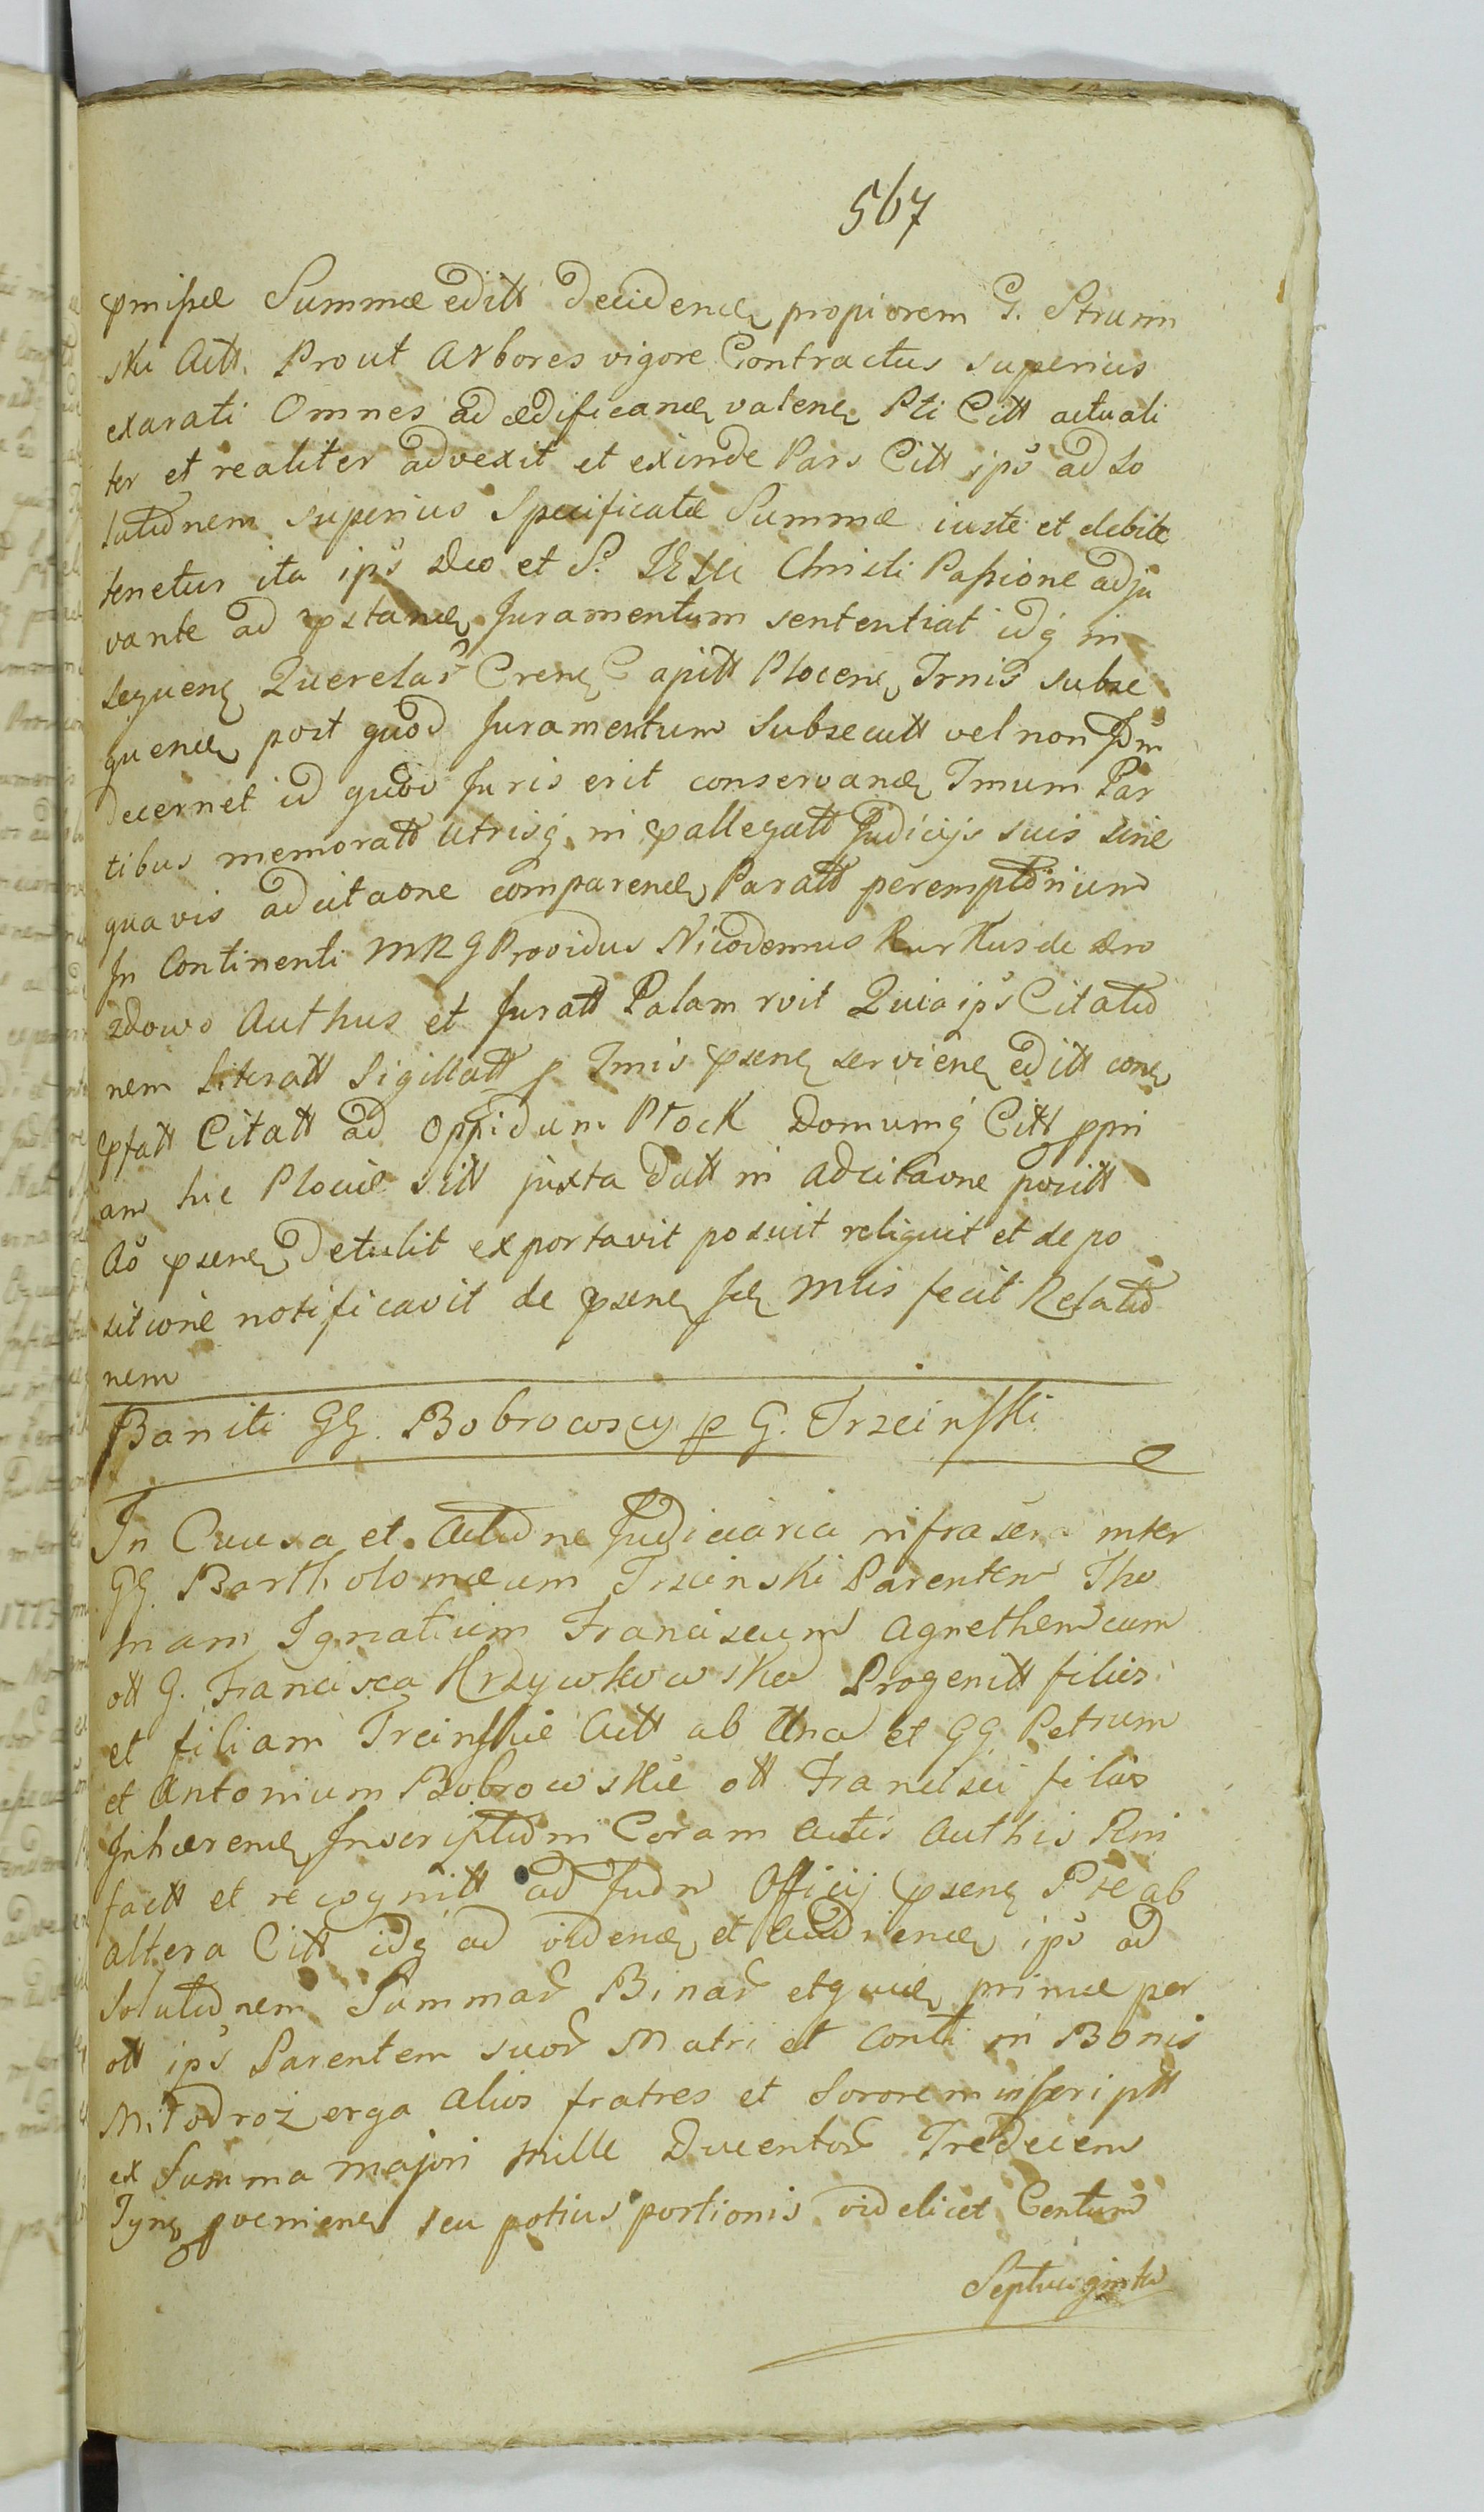 567
pmissæ Summæ editt decidend propiorem G. Strumi
ski Actt. Prout Arbores vigore Contractus superius
exarati Omnes ad ædificand valen Pti Citt actuali
ter et realiter advexit et exinde Pars Citt ips ad so
lutionem superius Specificatæ Summæ iuste et debite
tenetur ita ips Deo et S. IESU Christi Passione adju
vante ad pstand Juramentum sententiat idq in
sequen Querelar Cren Capitt Plocen Trnis subse
quend post quod Juramentum subsecutt vel non Jdm
decernet id quod Juris erit conservand Tmum Par
tibus memoratt utrisq in pallegatt Judicijs suis sine
quavis adcitaone comparend Paratt peremptorium
In Continenti MRG Providus Nicodemus Kurkus de Dro
zdowo Authus et Juratt Palam rvit Quia ips Citatio
nem Literatt Sigillatt p Tmis psen servien editt con
pfatt Citatt ad Oppidum Płock Domumq Citt ppri
am hic Plociæ sitt juxta datt in adcitaone positt
Ao psen detulit exportavit posuit reliquit et de po
sitione notificavit de psen fe mtis fecit Relatio
nem
Baniti GG. Bobrowscy p G. Trzcinski
In Causa et Actione Judiciaria infrascra inter
GG. Bartholomæum Trzcinski Parentem Tho
mam Ignatium Franciscum Agnethem cum
ott G. Francisca Krzywkowska Progenitt filios
et filiam Trcinskie Actt ab Una et GG Petrum
et Antonium Bobrowskie ott Francisci filios
Inhærend Inscriptioni Coram Actis Authis Rni
factt et recognitt ad Judm Officij psen Pte ab
altera Citt idq ad vidend et audiend ips ad
Solutionem Summar Binar etquid primæ per
ott ips Parentem suor Matri et Conti in Bonis
Miłodroż erga alios fratres et Sororem inscriptt
ex Summa majori Mille Ducentor Tredecem
Tyn pvenien seu potius portionis videlicet Centum
Septuaginta